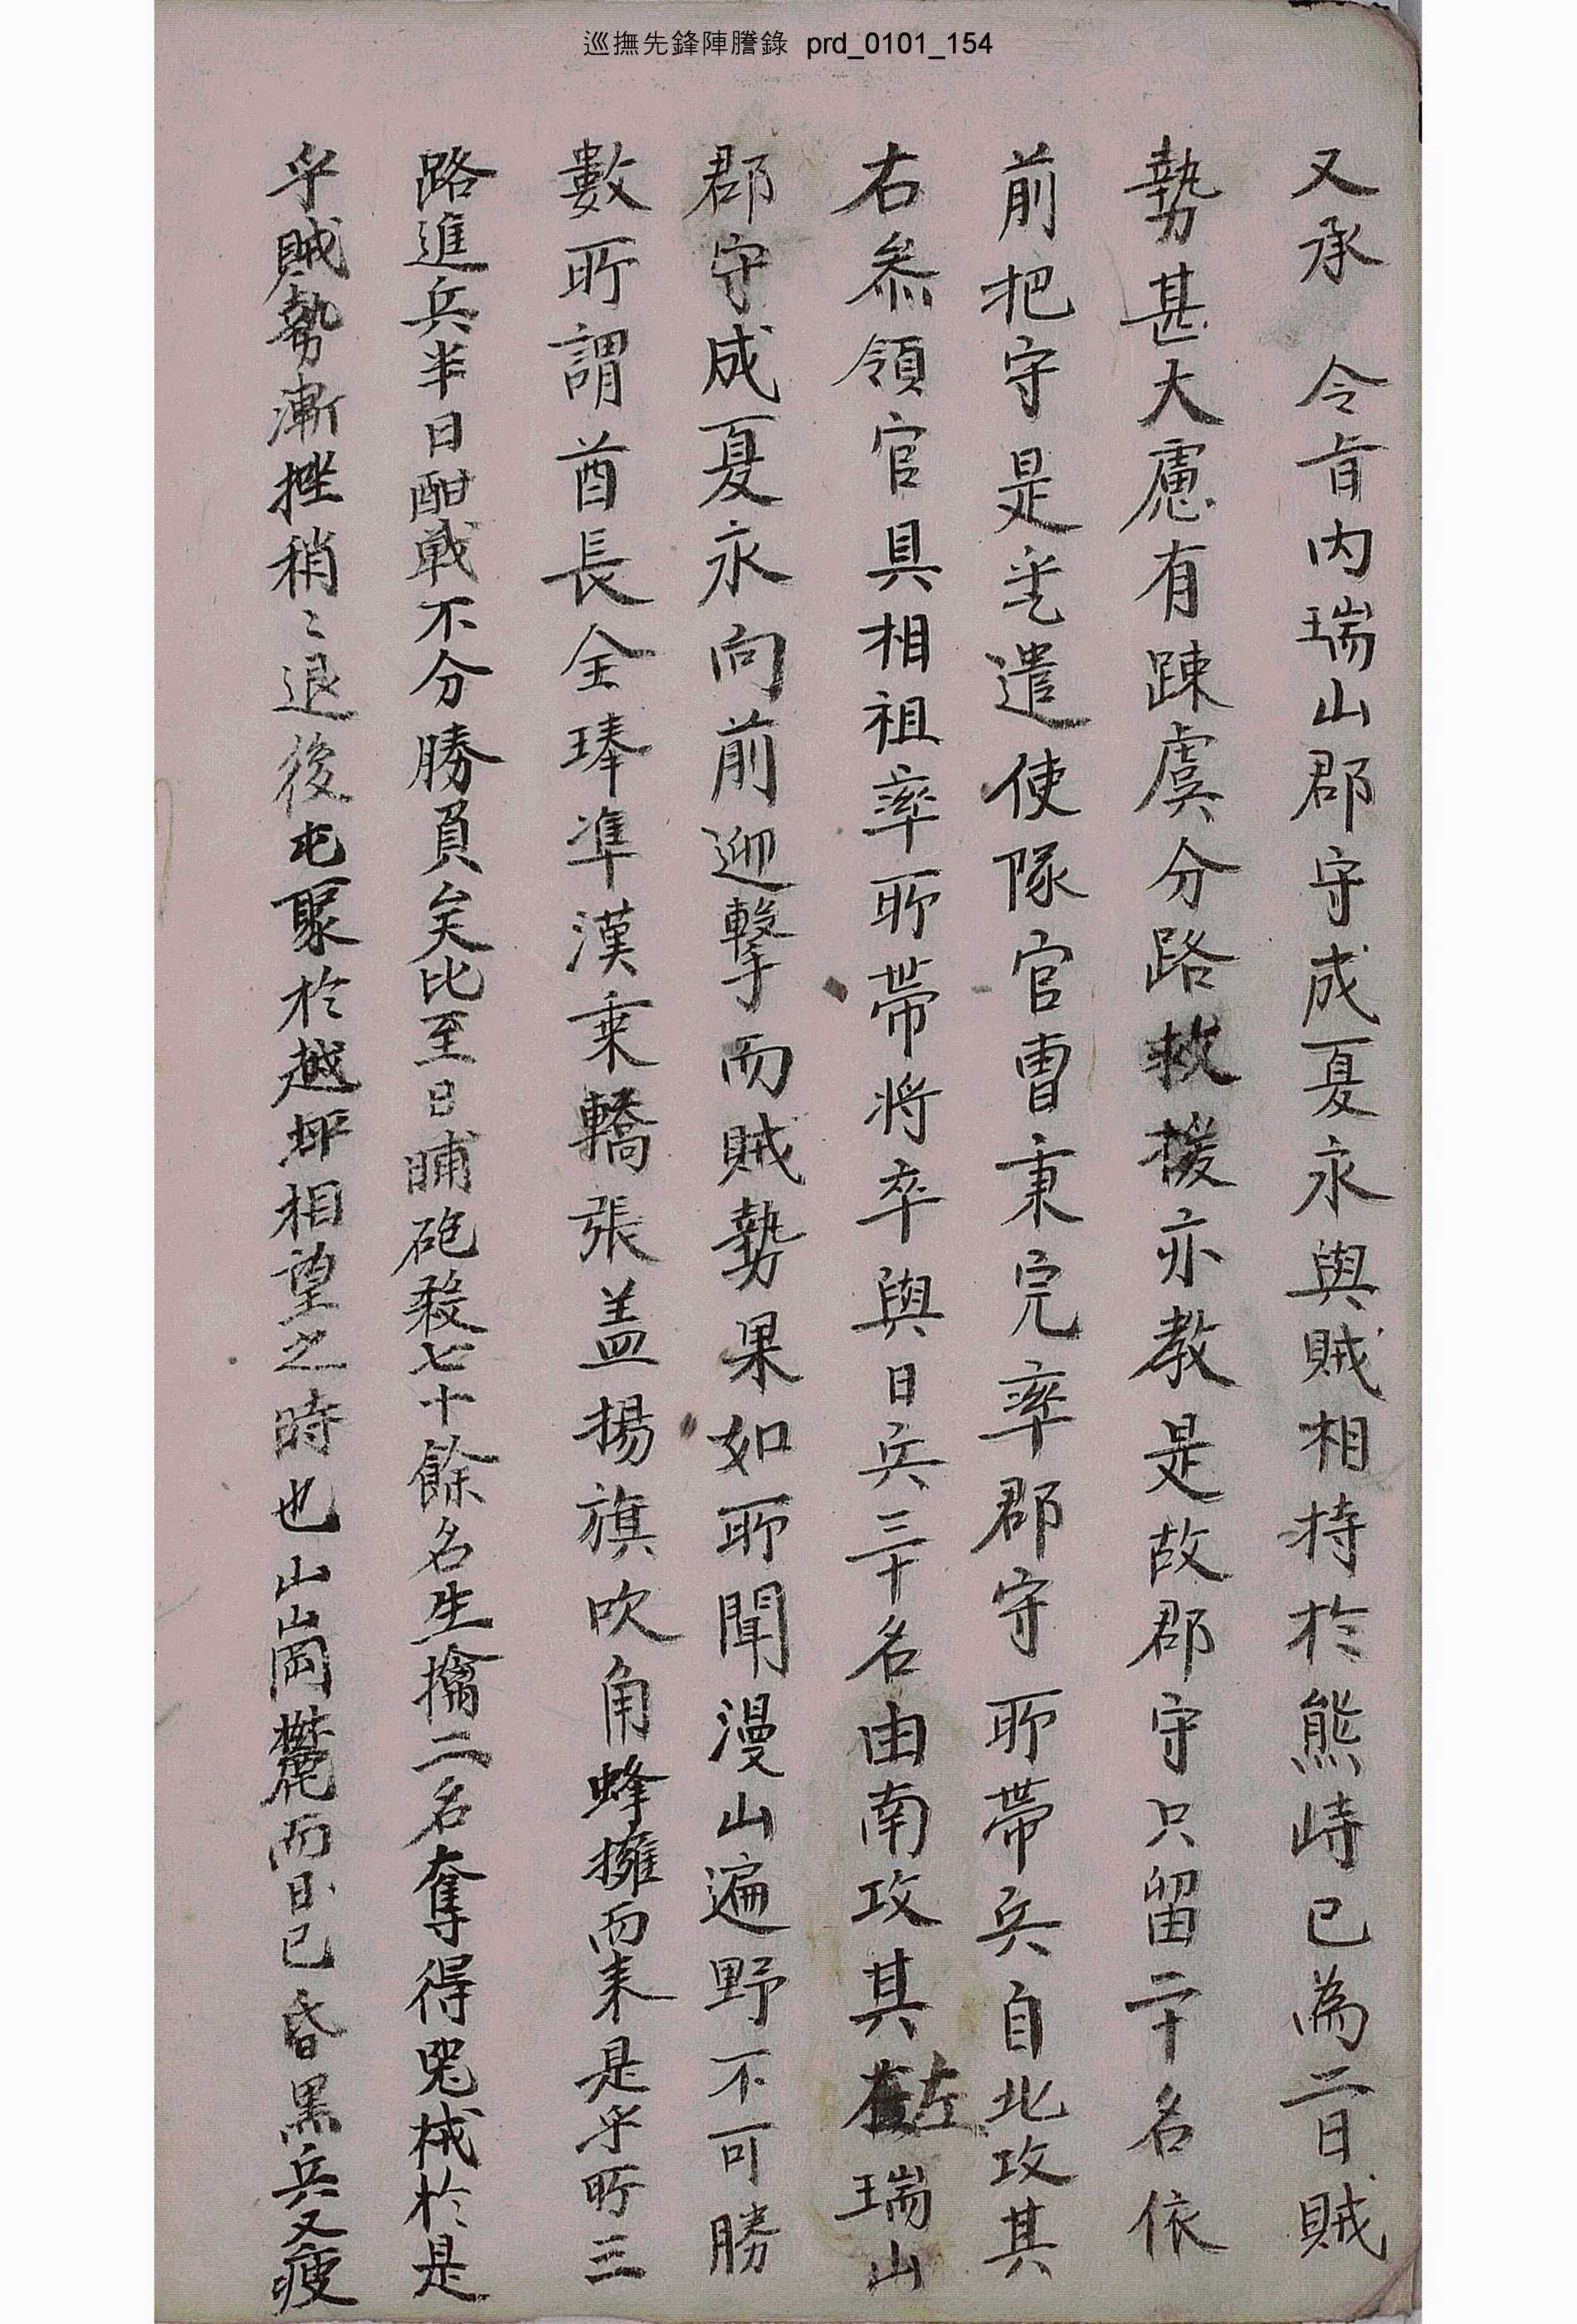 巡撫先鋒陣謄錄 prd_0101_154
又承 令旨內瑞山郡守成夏永與賊相持於熊峙已為二日賊
勢甚大慮有踈虞分路救援亦教是故郡守只留二十名依
前把守是遣遣使隊官曺秉完率郡守所帶兵自北攻其
右叅領官具相祖率所帶將卒與日兵三十名由南攻其左瑞山
郡守成夏永向前迎擊而賊勢果如所聞漫山遍野不可勝
數所謂酋長全琫準漢乘轎張盖揚旗吹角蜂擁而來是乎所三
路進兵半日酣戰不分勝負矣比至日晡砲殺七十餘名生擒二名奪得器械於是
乎賊勢漸挫稍〻退後屯聚於越坪相望之時也山崗麓而日已昏黑兵又疲